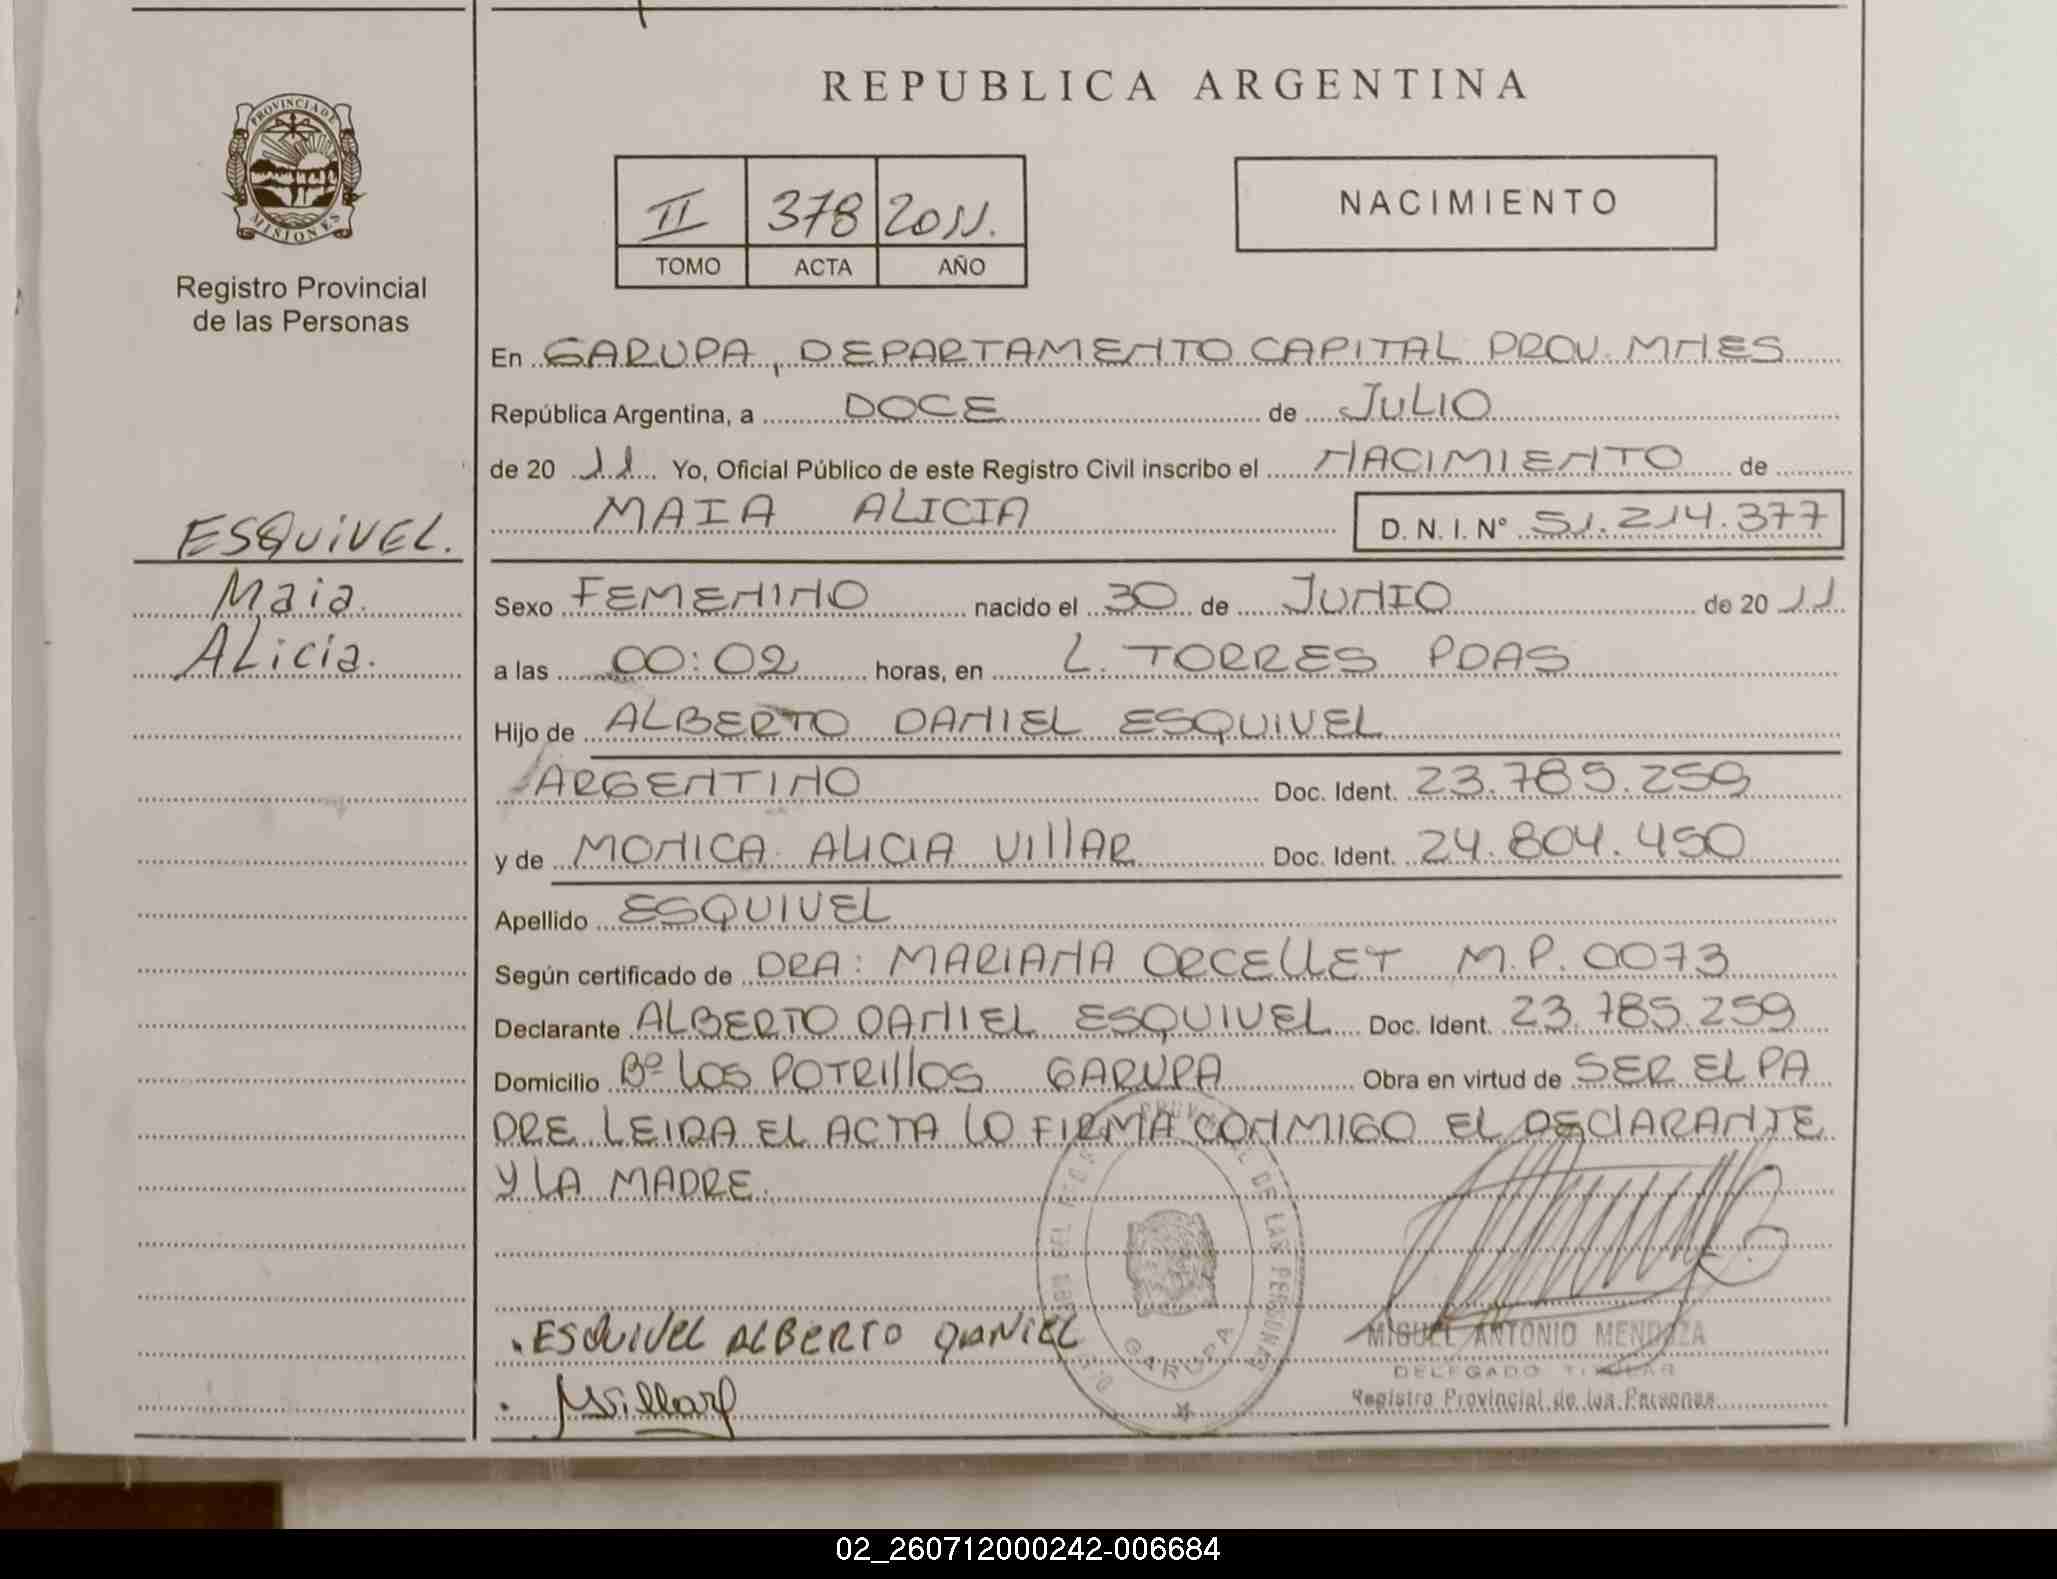 REPUBLICA ARGENTINA
PROVINCIA DE
MISIONES
Registro Provincial
de las Personas
II 378 2011.
TOMO ACTA AÑO
NACIMIENTO
En GARUPA, DEPARTAMENTO CAPITAL PROV. MNES
República Argentina, a DOCE de JULIO
de 20 11 Yo, Oficial Público de este Registro Civil inscribo el NACIMIENTO de
MAIA ALICIA D. N. I. N° 51.214.377
ESQUIVEL.
Maia.
ALicia.
Sexo FEMENINO nacido el 30 de JUNIO de 20 11
a las 00:02 horas, en L. TORRES PDAS
Hijo de ALBERTO DANIEL ESQUIVEL
ARGENTINO Doc. Ident. 23.785.259
y de MONICA ALICIA VIllAR Doc. Ident. 24.804.450
Apellido ESQUIVEL
Según certificado de DRA: MARIANA ORCEllET M.P. 0073
Declarante ALBERTO DANIEL ESQUIVEL Doc. Ident. 23.785.259
Domicilio Bº LOS POTRIllOS GARUPA Obra en virtud de SER EL PA
DRE LEIDA EL ACTA LO FIRMA CONMIGO EL DECLARANTE
Y LA MADRE.
ESQUIVEL ALBERTO DANIEL
MVillar
GARUPA
MIGUEL ANTONIO MENDOZA
DELEGADO TITULAR
Registro Provincial de las Personas
02_260712000242-006684